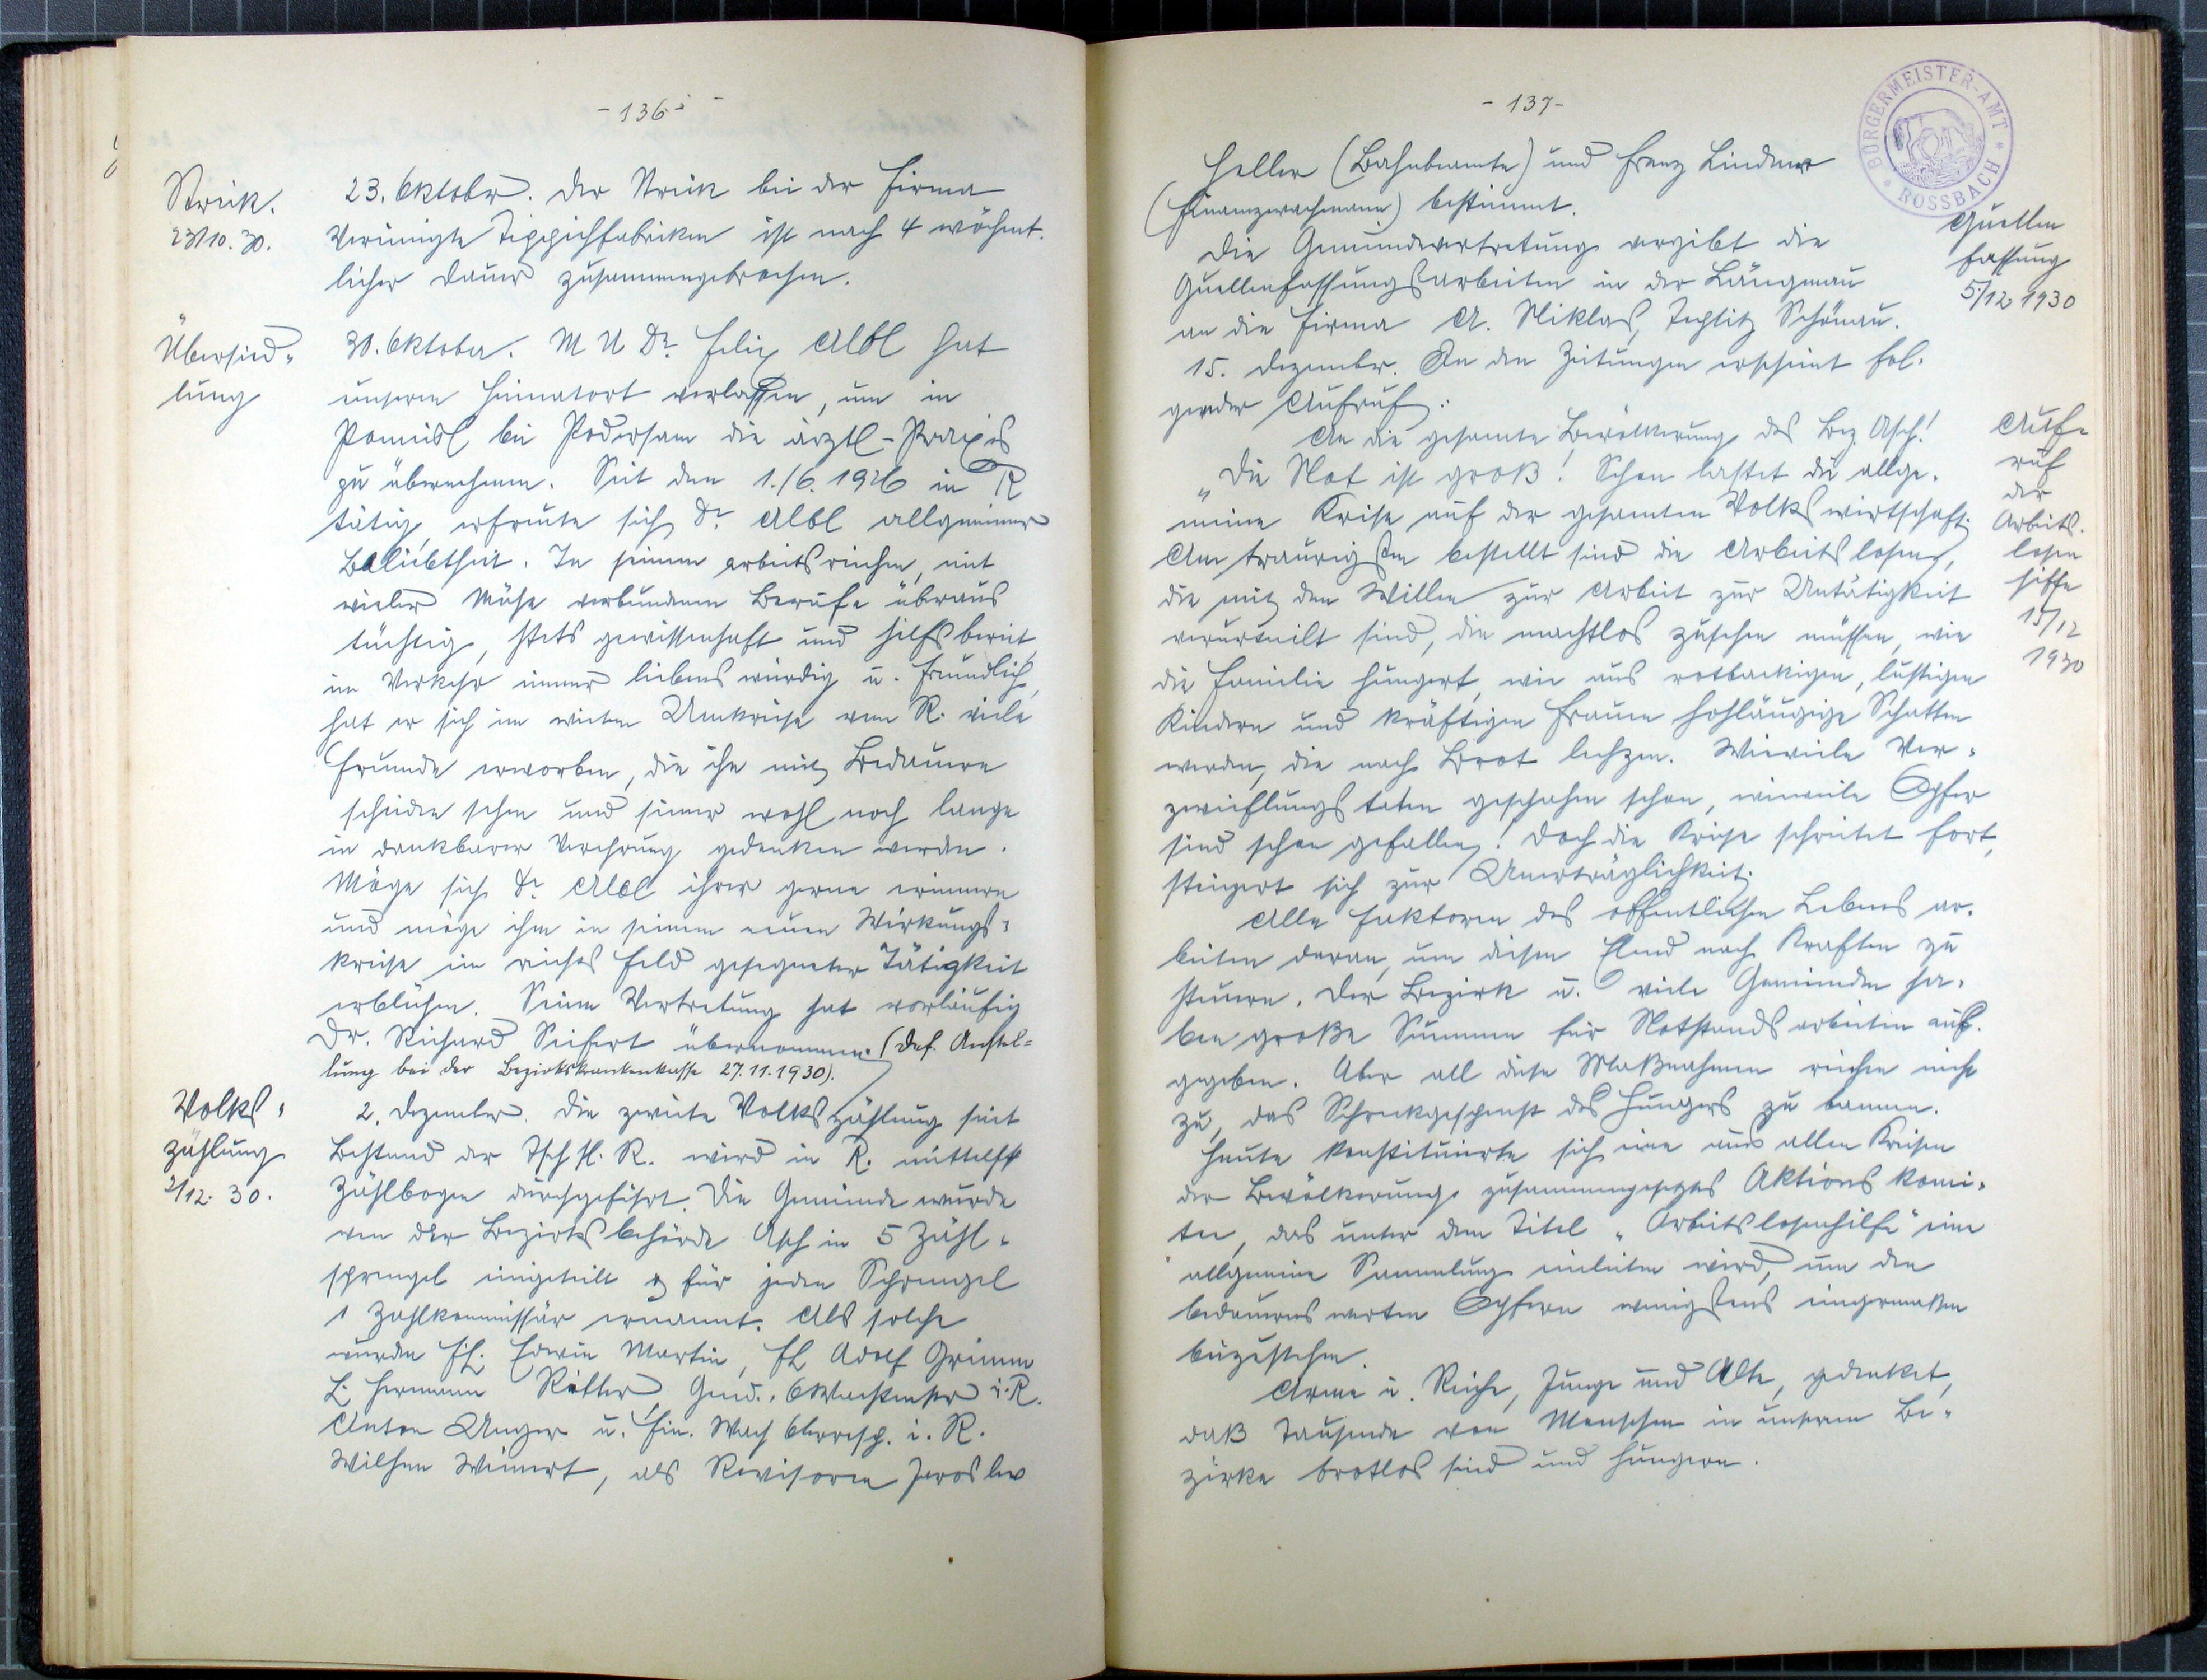 - 136 -
Streik.
23/10. 30.
23. Oktober. Der Streik bei der Firma
Vereinigte Teppichfabriken ist nach 4 wöchent-
licher Dauer zusammengebrochen.
Übersied-
lung
30. Oktober. M U Dr. Felix Albl hat
unseren Heimatort verlassen, um in
Pomeisl bei Podersam die ärztl-Praxis
zu übernehmen. Seit den 1./6. 1926 in R
tätig, erfreute sich Dr. Albl allgemeiner
Beliebtheit. In seinem arbeitsreichen, mit
vieler Mühe verbundenen Berufe überaus
tüchtig, stets gewissenhaft und hilfsbereit,
im Verkehr immer liebenswürdig u. freundlich,
hat er sich im weiten Umkreise von R. viele
Freunde erworben, die ihn mit Bedauern
scheiden sehen und seiner wohl noch lange
in dankbarer Verehrung gedenken werden.
Möge sich Dr. Albl ihrer gerne erinnern
und möge ihm in seinem neuen Wirkungs-
kreise ein reiches Feld gesegneter Tätigkeit
erblühen. Seine Vertretung hat vorläufig
Dr. Richard Seifert übernommen. (Def. Anstel-
lung bei der Bezirkskrankenkasse 27.11.1930).
Volks-
zählung
2/12. 30.
2. Dezember. Die zweite Volkszählung seit
Bestand der Tsch sl. R. wird in R. mittelst
Zählbogen durchgeführt. Die Gemeinde wurde
von der Bezirksbehörde Asch in 5 Zähl-
sprengel eingeteilt & für jeden Sprengel
1 Zählkommissär ernannt. Als solche
wurden Fl. Edwin Martin, FL Adolf Grimm
L. Hermann Ritter, Gend. OWachtmstr i. R.
Anton Unger u. Fin. Wach Oberresp. i. R.
Wilhem Weinert, als Revisoren Jaroslav
- 137 -
BÜRGERMEISTER-AMT
ROSSBACH
Heller (Bahnbeamte) und Franz Lindner
(Finanzwachmann) bestimmt.
Quellen
fassung
5./12 1930
Die Gemeindevertretung vergibt die
Quellenfassungsarbeiten in der Längenau
an die Firma A. Niklas, Teplitz Schönau.
15. Dezember. In den Zeitungen erscheint fol-
gender Aufruf:
Auf-
ruf
der
Arbeits-
losen
hilfe
15/12
1930
An die gesamte Bevölkerung des Bez Asch!
„Die Not ist groß! Schon lastet die allge-
meine Krise auf der gesamten Volkswirtschaft.
Am traurigsten bestellt sind die Arbeitslosen,
die mit dem Willen zur Arbeit zur Untätigkeit
verurteilt sind, die machtlos zusehen müssen, wie
die Familie hungert, wie aus rotbackigen, lustigen
Kindern und kräftigen Frauen hohläugige Schatten
werden, die nach Brot lechzen. Wieviele Ver-
zweiflungstaten geschahen schon, wieviele Opfer
sind schon gefallen! Doch die Krise schreitet fort,
steigert sich zur Unerträglichkeit.
Alle Faktoren des öffentlichen Lebens ar-
beiten daran, um diesem Elend nach Kräften zu
steuern. Der Bezirk u. viele Gemeinden ha-
ben große Summen für Notstandsarbeiten aus-
gegeben. Aber all diese Maßnahmen reichen nicht
zu, das Schreckgespenst des Hungers zu bannen.
Heute konstituierte sich ein aus allen Kreisen
der Bevölkerung zusammengesetztes Aktionskomi-
tee, das unter dem Titel „Arbeitslosenhilfe" eine
allgemeine Sammlung einleiten wird, um den
bedauernswerten Opfern wenigstens einigermaßen
beizustehen.
Arme u. Reiche, Junge und Alte, gedenket,
daß Tausende von Menschen in unserem Be-
zirke brotlos sind und hungern.